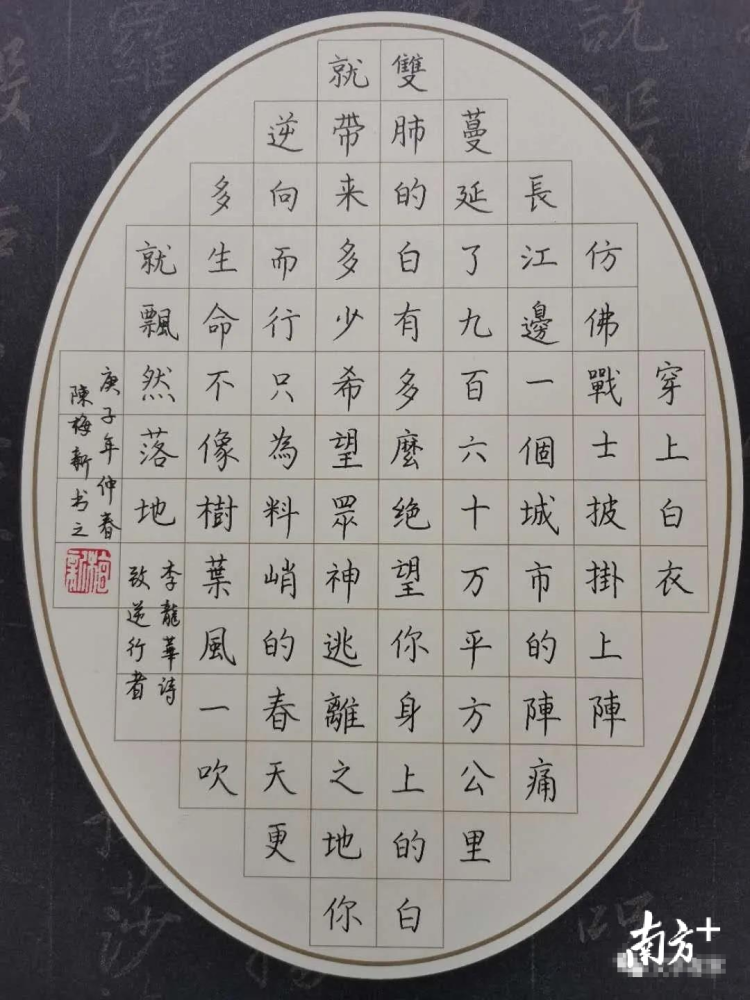 穿上白衣
仿佛戰士披掛上陣
長江邊一個城市的陣痛
蔓延了九百六十万平方公里
雙肺的白有多麼绝望你身上的白
就帶来多少希望眾神逃離之地你
逆向而行只為料峭的春天更
多生命不像樹葉風一吹
就飄然落地
李龍華诗
致逆行者
庚子年仲春
陳梅新书之
南方+